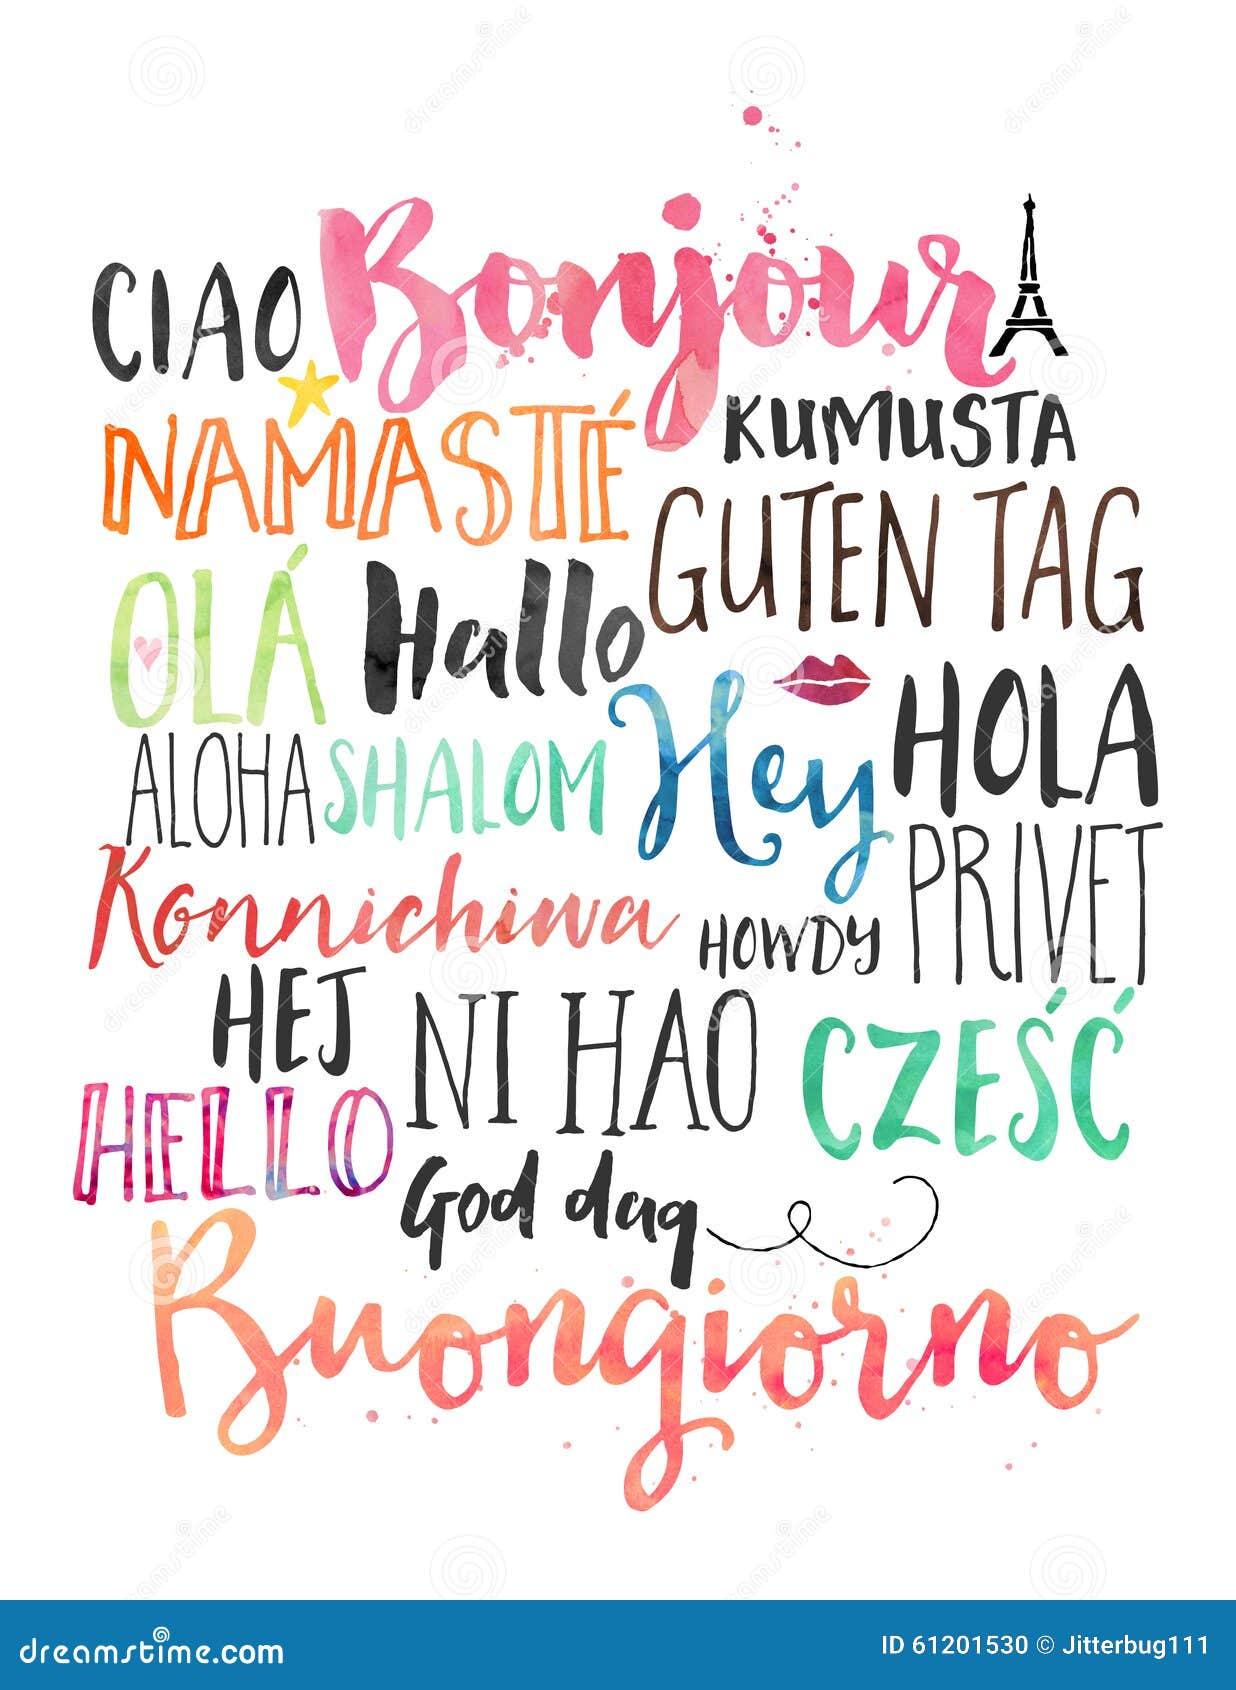 CIAO Bonjour
NAMASTÉ KUMUSTA
GUTEN TAG
OLÁ Hallo
Hey HOLA
ALOHA SHALOM
Konnichiwa HOWDY PRIVET
HEJ NI HAO CZEŚĆ
HELLO God dag
Buongiorno
dreamstime.com ID 61201530 © Jitterbug111